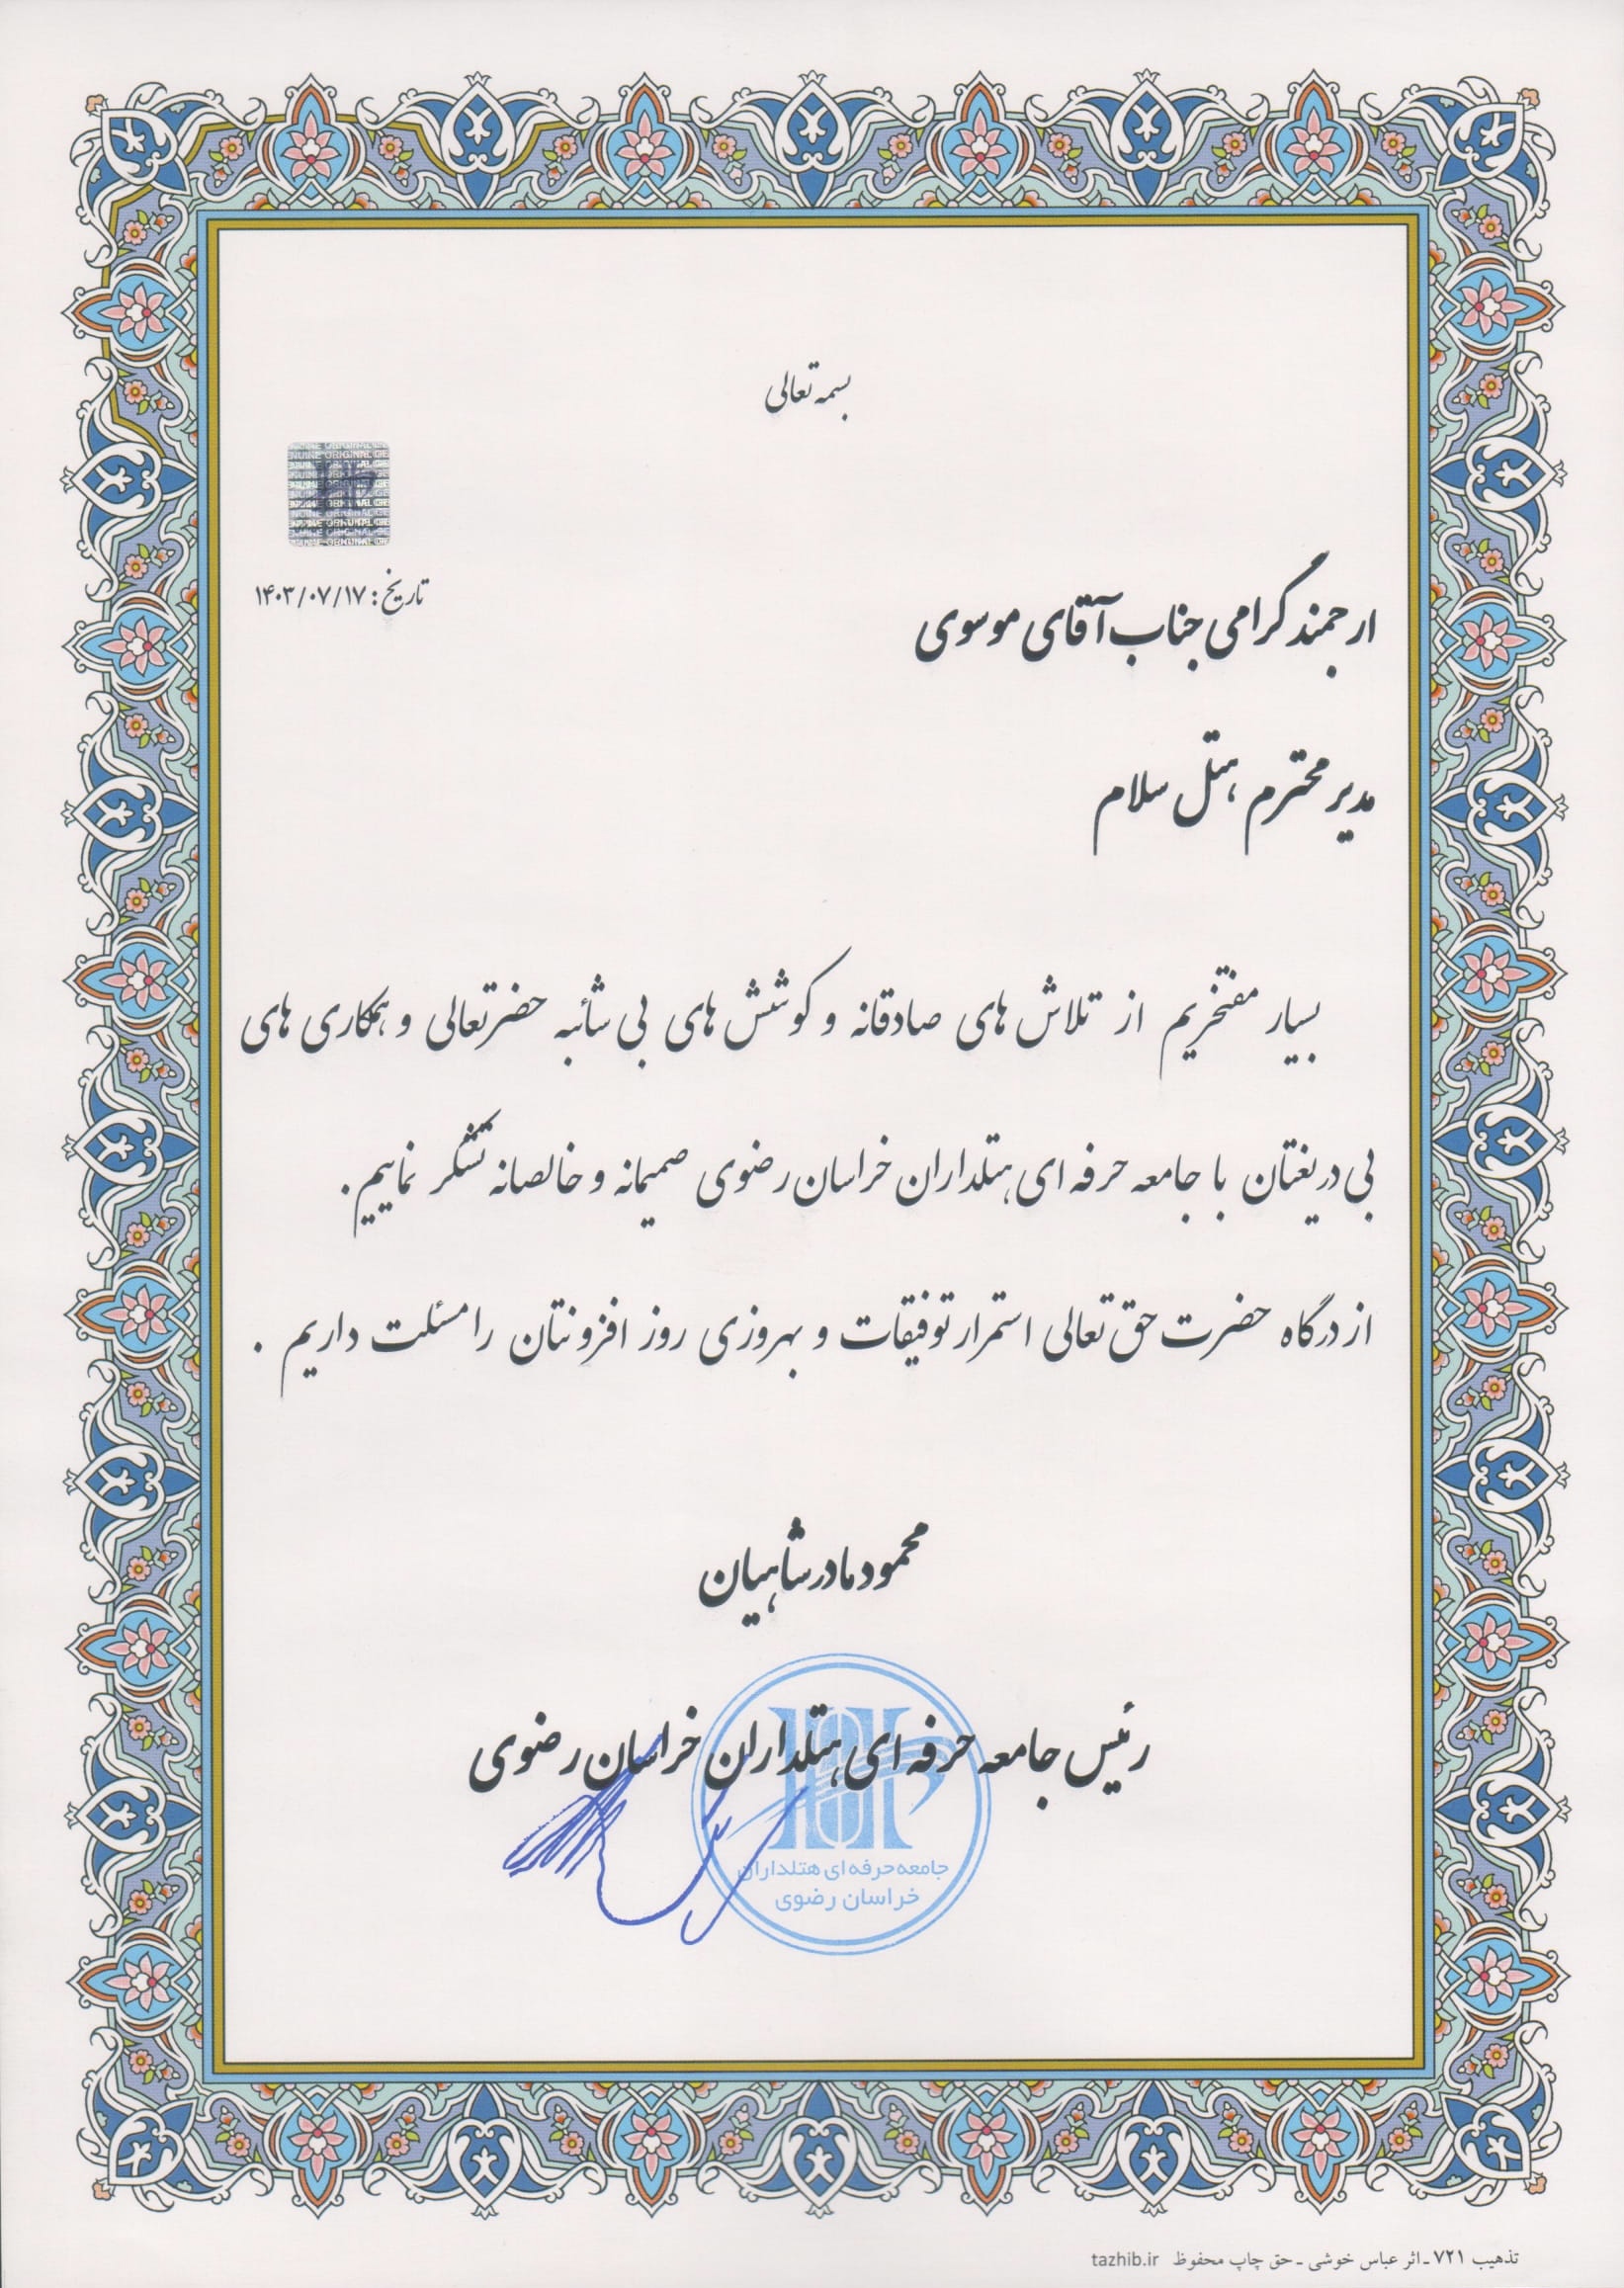 بسمه تعالی
تاریخ: ۱۴۰۳/۰۷/۱۷
ارجمند گرامی جناب آقای موسوی
مدیر محترم هتل سلام
بسیار مفتخریم از تلاش های صادقانه و کوشش های بی شائبه حضرتعالی و همکاری های
بی دریغتان با جامعه حرفه ای هتلداران خراسان رضوی صمیمانه و خالصانه تشکر نماییم.
از درگاه حضرت حق تعالی استمرار توفیقات و بهروزی روز افزونتان را مسئلت داریم .
محمود مادرشاهیان
رئیس جامعه حرفه ای هتلداران خراسان رضوی
جامعه حرفه ای هتلداران
خراسان رضوی
تذهیب ۷۲۱ - اثر عباس خوشی - حق چاپ محفوظ tazhib.ir